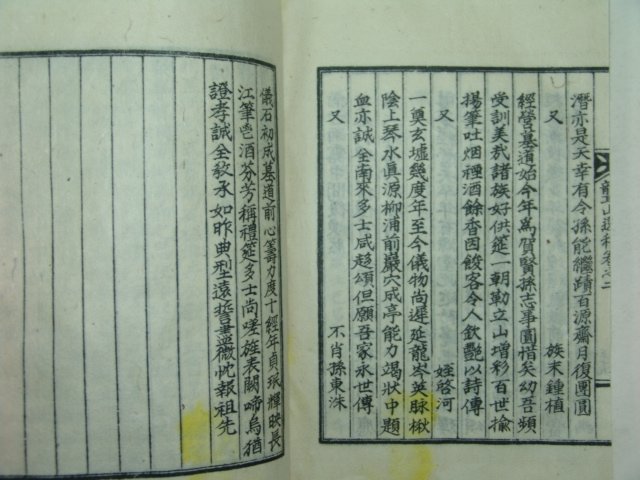 潛亦是天幸有令孫能繼蹟百源齋月復團圓
又　族末鍾植
經營墓道始今年爲賀賢孫志事圓惜矣幼吾頻
受訓美哉諸族好供筵一朝勒立山增彩百世揄
揚筆吐烟種酒餘香因餕客令人欽艷以詩傳
又　姪啓河
一奠玄墟幾度年至今儀物尚遲延龍岑英脉楸
陰上琴水眞源柳浦前巖穴咸亭能力竭狀中題
血亦誠全南來多士咸趍頌但願吾家永世傳
又　不肖孫東洙
儀石初成墓道前心籌力度十經年貞珉輝映長
江筆鬯酒芬芳稱禮筵多士尚嗟旌表闕啼烏猶
證孝誠全敎承如昨典型遠誓盡微忱報祖先